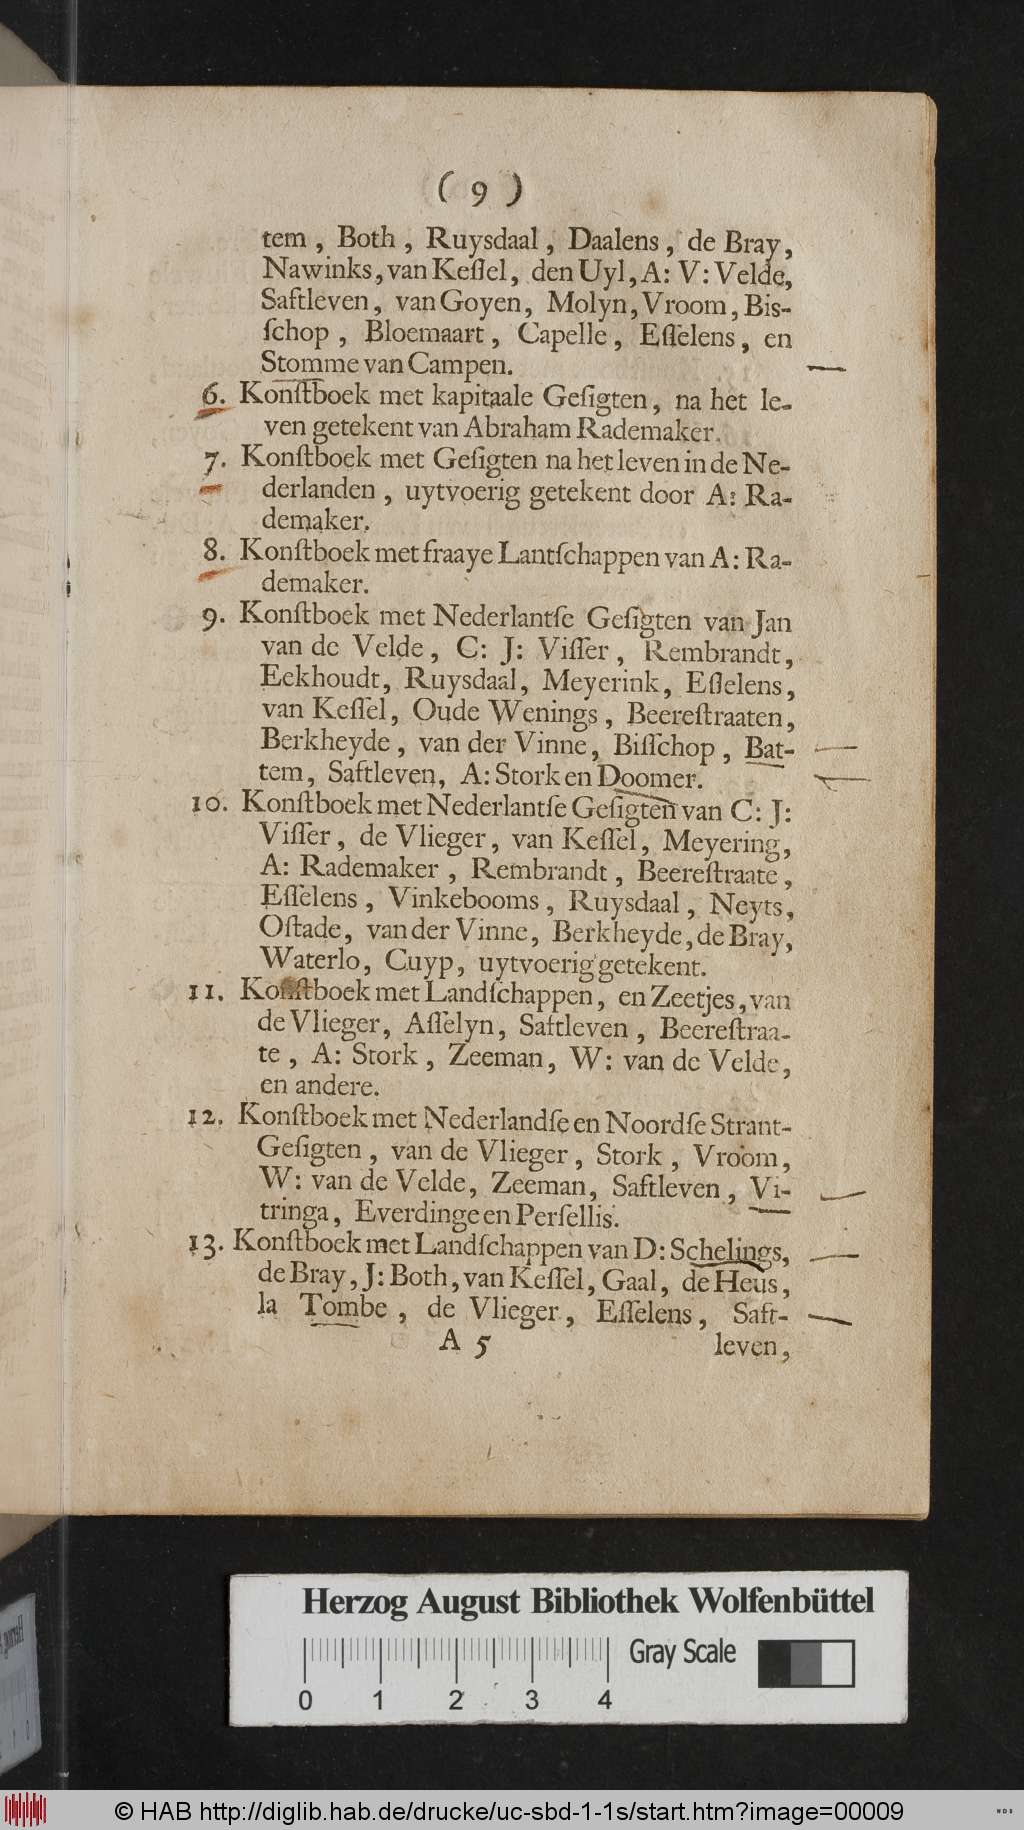 ( 9 )
tem , Both , Ruysdaal , Daalens , de Bray,
Nawinks, van Keſſel, den Uyl, A: V: Velde,
Saftleven, van Goyen, Molyn, Vroom, Bis-
ſchop , Bloemaart , Capelle , Eſſelens , en
Stomme van Campen.
6. Konſtboek met kapitaale Geſigten, na het le-
ven getekent van Abraham Rademaker.
7. Konſtboek met Geſigten na het leven in de Ne-
derlanden , uytvoerig getekent door A: Ra-
demaker.
8. Konſtboek met fraaye Lantſchappen van A: Ra-
demaker.
9. Konſtboek met Nederlantſe Geſigten van Jan
van de Velde, C: J: Viſſer, Rembrandt,
Eekhoudt, Ruysdaal, Meyerink, Eſſelens,
van Keſſel, Oude Wenings, Beereſtraaten,
Berkheyde, van der Vinne, Biſſchop, Bat-
tem, Saftleven, A: Stork en Doomer.
10. Konſtboek met Nederlantſe Geſigten van C: J:
Viſſer, de Vlieger, van Keſſel, Meyering,
A: Rademaker , Rembrandt , Beereſtraate,
Eſſelens, Vinkebooms, Ruysdaal, Neyts,
Oſtade, van der Vinne, Berkheyde, de Bray,
Waterlo, Cuyp, uytvoerig getekent.
11. Konſtboek met Landſchappen, en Zeetjes, van
de Vlieger, Aſſelyn, Saftleven , Beereſtraa-
te , A: Stork , Zeeman, W: van de Velde,
en andere.
12. Konſtboek met Nederlandſe en Noordſe Strant-
Geſigten, van de Vlieger, Stork, Vroom,
W: van de Velde, Zeeman, Saftleven, Vi-
tringa, Everdinge en Perſellis.
13. Konſtboek met Landſchappen van D: Schelings,
de Bray, J: Both, van Keſſel, Gaal, de Heus,
la Tombe , de Vlieger, Eſſelens, Saft-
A 5 leven,
Herzog August Bibliothek Wolfenbüttel
Gray Scale
0 1 2 3 4
© HAB http://diglib.hab.de/drucke/uc-sbd-1-1s/start.htm?image=00009